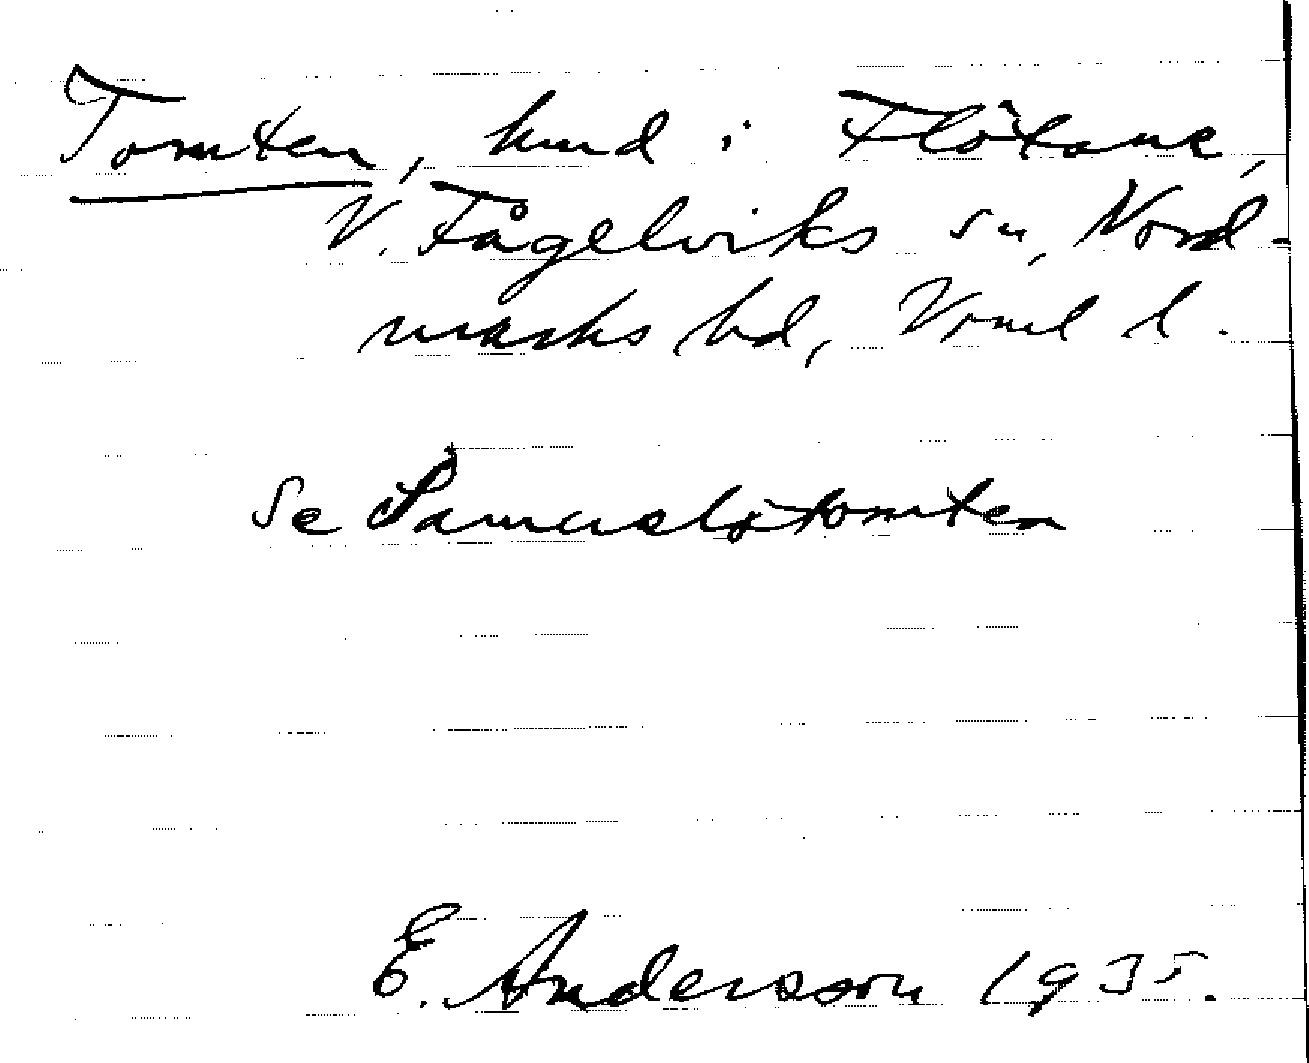 Tomten, hmd i Flötane,
V. Fågelviks sn, Nord-
marks hd, Vrml l.
Se
E. Andersson 1935.